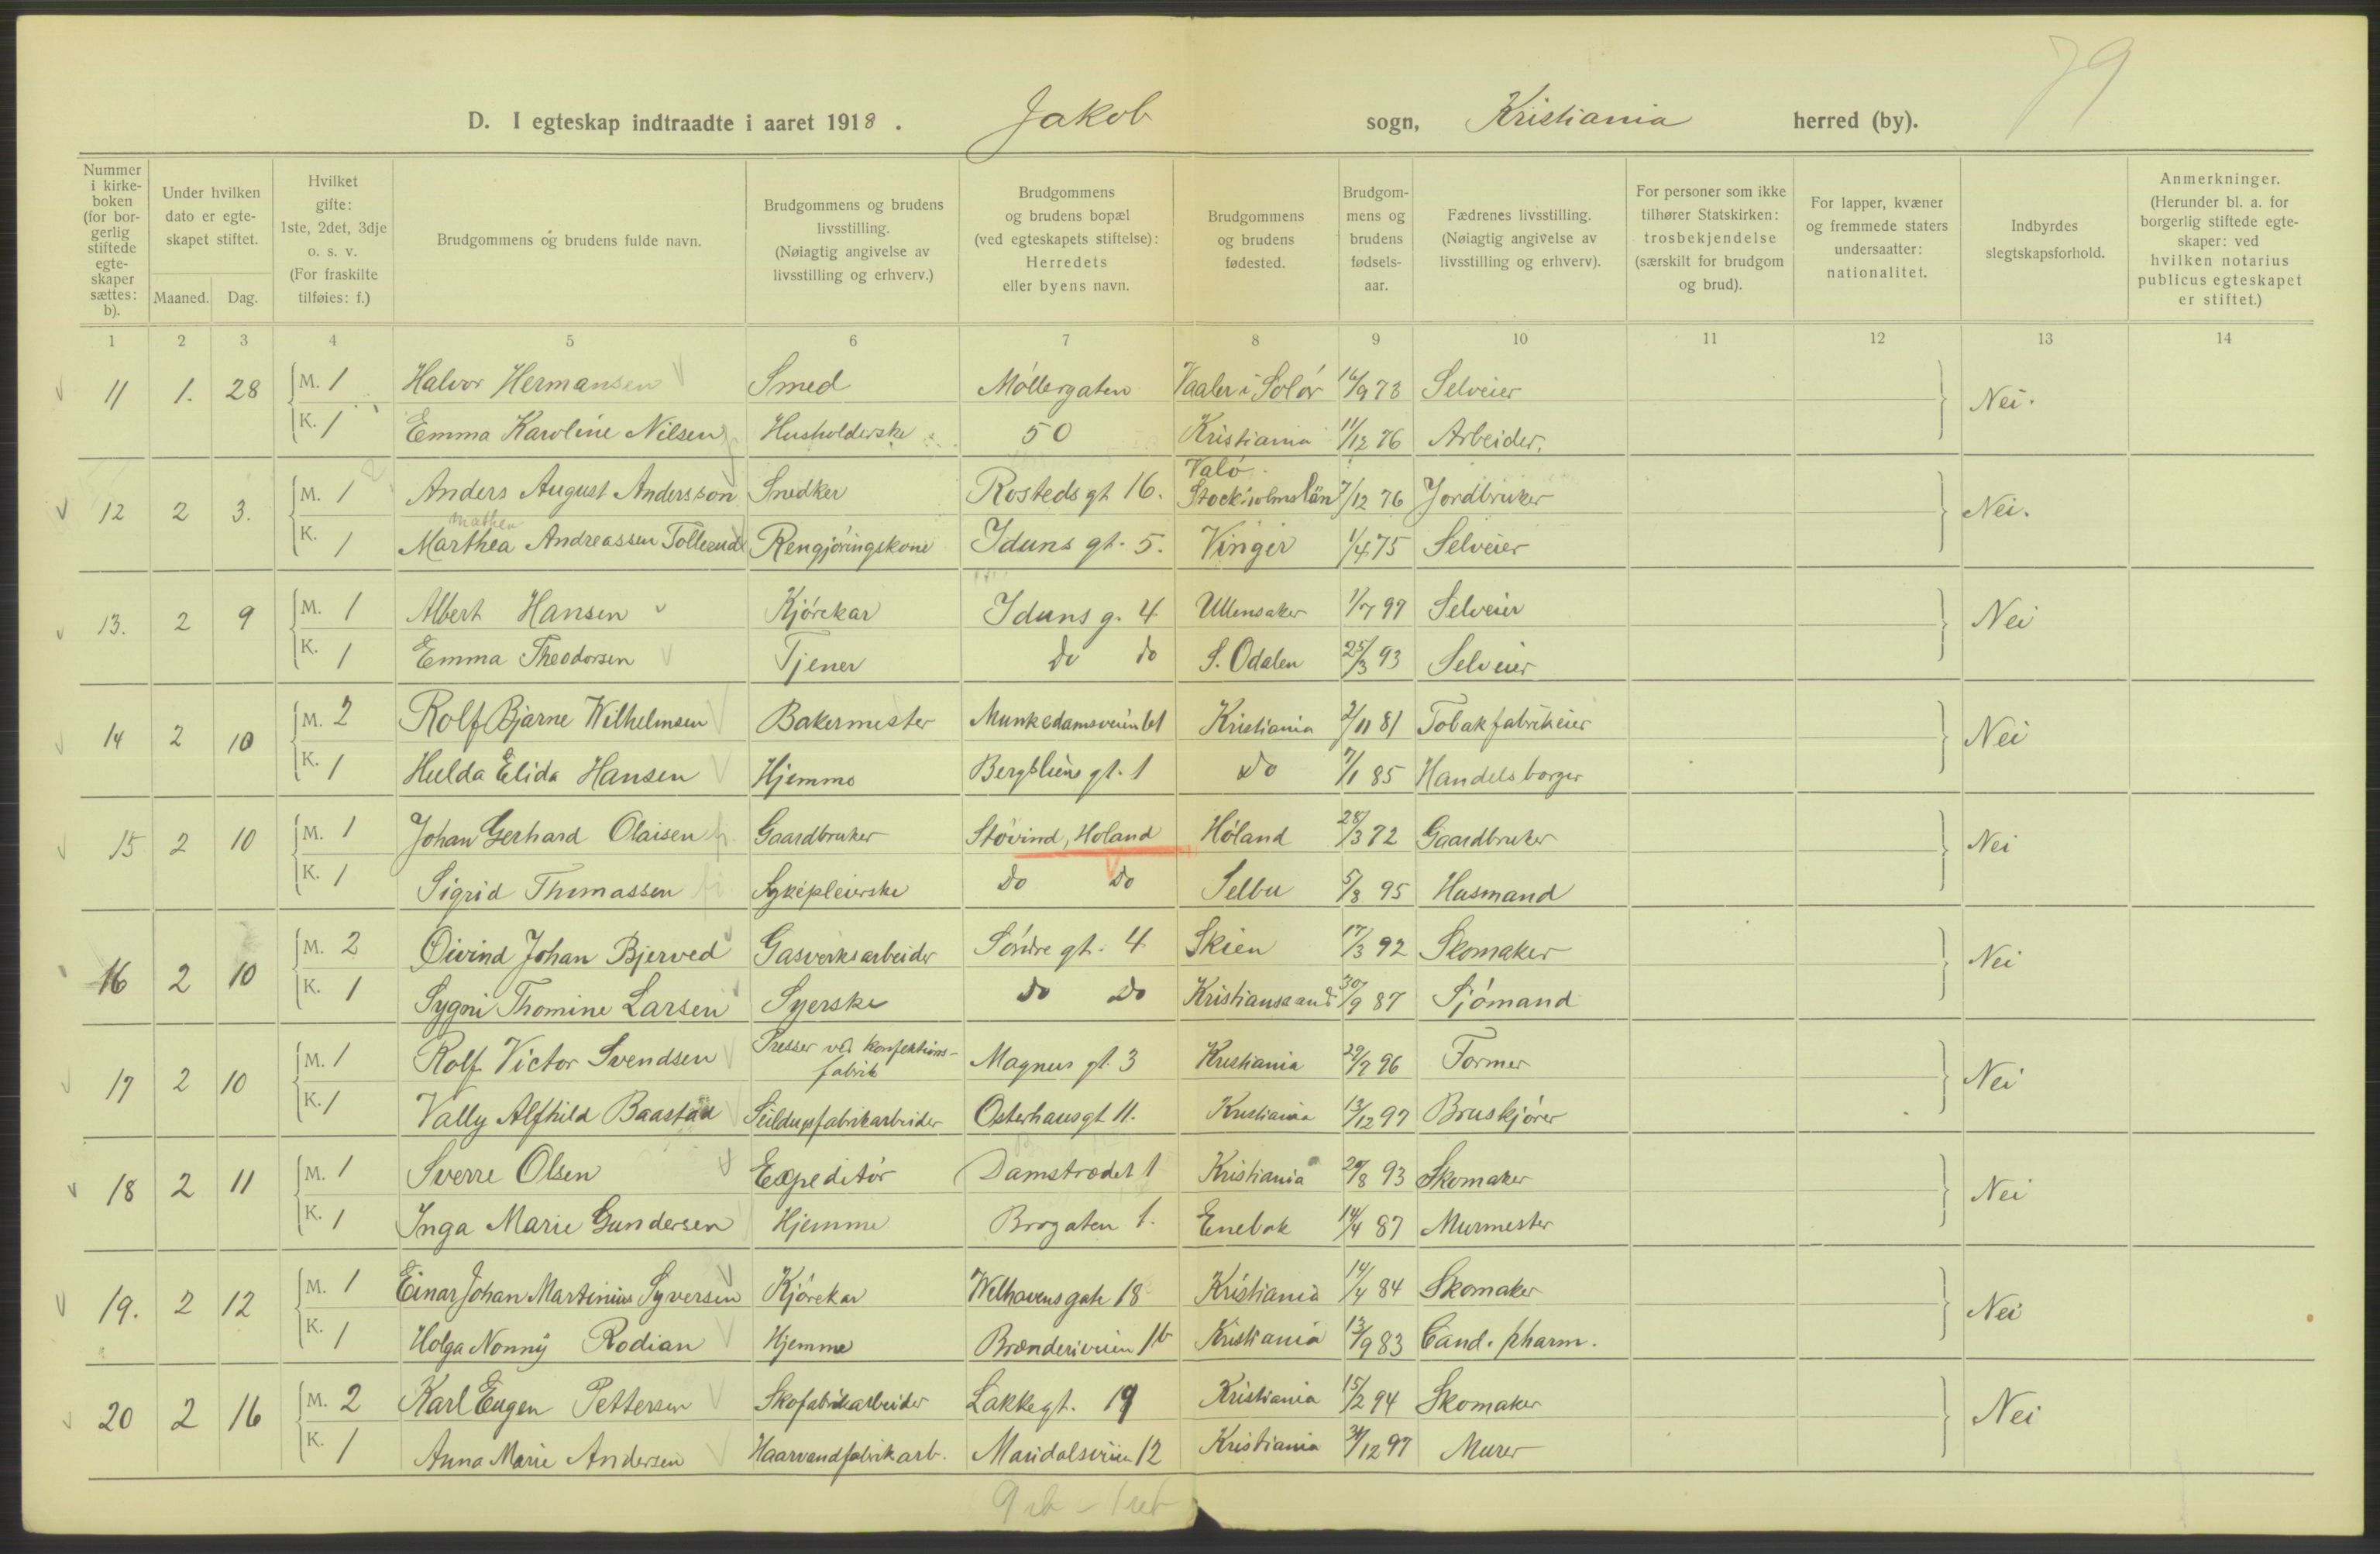 79
D. I egteskap indtraadte i aaret 1918. Jakob sogn, Kristiania herred (by).
Nummer i kirke-boken (for bor-gerlig stiftede egte-skaper sættes: b).
Under hvilken dato er egte-skapet stiftet.
Maaned. Dag.
Hvilket gifte: 1ste, 2det, 3dje o. s. v. (For fraskilte tilføies: f.)
Brudgommens og brudens fulde navn.
Brudgommens og brudens livsstilling. (Nøiagtig angivelse av livsstilling og erhverv.)
Brudgommens og brudens bopæl (ved egteskapets stiftelse): Herredets eller byens navn.
Brudgommens og brudens fødested.
Brudgom-mens og brudens fødsels-aar.
Fædrenes livsstilling. (Nøiagtig angivelse av livsstilling og erhverv).
For personer som ikke tilhører Statskirken: trosbekjendelse (særskilt for brudgom og brud).
For lapper, kvæner og fremmede staters undersaatter: nationalitet.
Indbyrdes slegtskapsforhold.
Anmerkninger. (Herunder bl. a. for borgerlig stiftede egte-skaper: ved hvilken notarius publicus egteskapet er stiftet.)
1 2 3 4 5 6 7 8 9 10 11 12 13 14
11 1. 28 M. 1 Halvor Hermansen Smed Møllergaten Vaaler i Solør 16/9 73 Selveier Nei.
K. 1 Emma Karoline Nilsen Husholderske 50 Kristiania 11/12 76 Arbeider.
12 2 3. M. 1 Anders August Andersson Snedker Rosteds gt 16. Valö Stockholms län 7/12 76 Jordbruker Nei.
Mathea
K. 1 Marthea Andreassen Tollerud Rengjøringskone Iduns gt. 5. Vinger 1/4 75 Selveier
13. 2 9 M. 1 Albert Hansen Kjørekar Iduns g. 4 Ullensaker 1/7 97 Selveier Nei
K. 1 Emma Theodorsen Tjener do do S. Odalen 25/3 93 Selveier
14 2 10 M. 2 Rolf Bjarne Wilhelmsen Bakermester Munkedamsveien 61 Kristiania 2/11 81 Tobakfabrikeier Nei
K. 1 Hulda Elida Hansen Hjemme Bergsliens gt. 1 do 7/1 85 Handelsborger
15 2 10 M. 1 Johan Gerhard Olaisen Gaardbruker Støvind, Høland Høland 28/3 72 Gaardbruker Nei
K. 1 Sigrid Thomassen Sykepleierske do do Selbu 5/8 95 Husmand
16 2 10 M. 2 Øivind Johan Bjerved Gasverksarbeider Søndre gt. 4 Skien 17/3 92 Skomaker Nei
K. 1 Sygni Thomine Larsen Syerske do do Kristiansand 30/9 87 Sjømand
17 2 10 M. 1 Rolf Victor Svendsen Presser ved konfektions-fabrik Magnus gt. 3 Kristiania 29/9 96 Former Nei
K. 1 Vally Alfhild Baastad Seildugsfabrikarbeider Osterhausgt 11. Kristiania 13/12 97 Bruskjører
18 2 11 M. 1 Sverre Olsen Expeditør Damstrædet 1 Kristiania 29/8 93 Skomaker Nei
K. 1 Inga Marie Gundersen Hjemme Brogaten 1. Enebak 14/4 87 Murmester
19. 2 12 M. 1 Einar Johan Martinius Syversen Kjørekar Welhavensgate 18 Kristiania 14/4 84 Skomaker Nei
K. 1 Holga Nonny Rodian Hjemme Brænderiveien 1b Kristiania 13/9 83 Cand. pharm.
20 2 16 M. 2 Karl Eugen Pettersen Skofabrikarbeider Lakkegt. 19 Kristiania 15/2 94 Skomaker Nei
K. 1 Anna Marie Andersen Haarvandfabrikarb. Maridalsveien 12 Kristiania 31/12 97 Murer